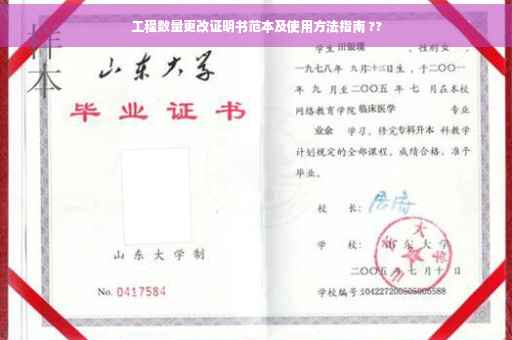 工程数量更改证明书范本及使用方法指南 ??
样本
山东大学
毕业证书
山东大学制
No. 0417584
学生 田敬璞 ，性别女 ，
一九七八年 九月十三日生，于二〇〇一
年 九 月至二〇〇五 年 七 月在本校
网络教育学院 临床医学 专业
业余 学习，修完专科升本 科教学
计划规定的全部课程，成绩合格，准予
毕业。
校 长：
学 校： 山东大学
二〇〇五 年 七 月 十 日
学校编号：104227200505005588